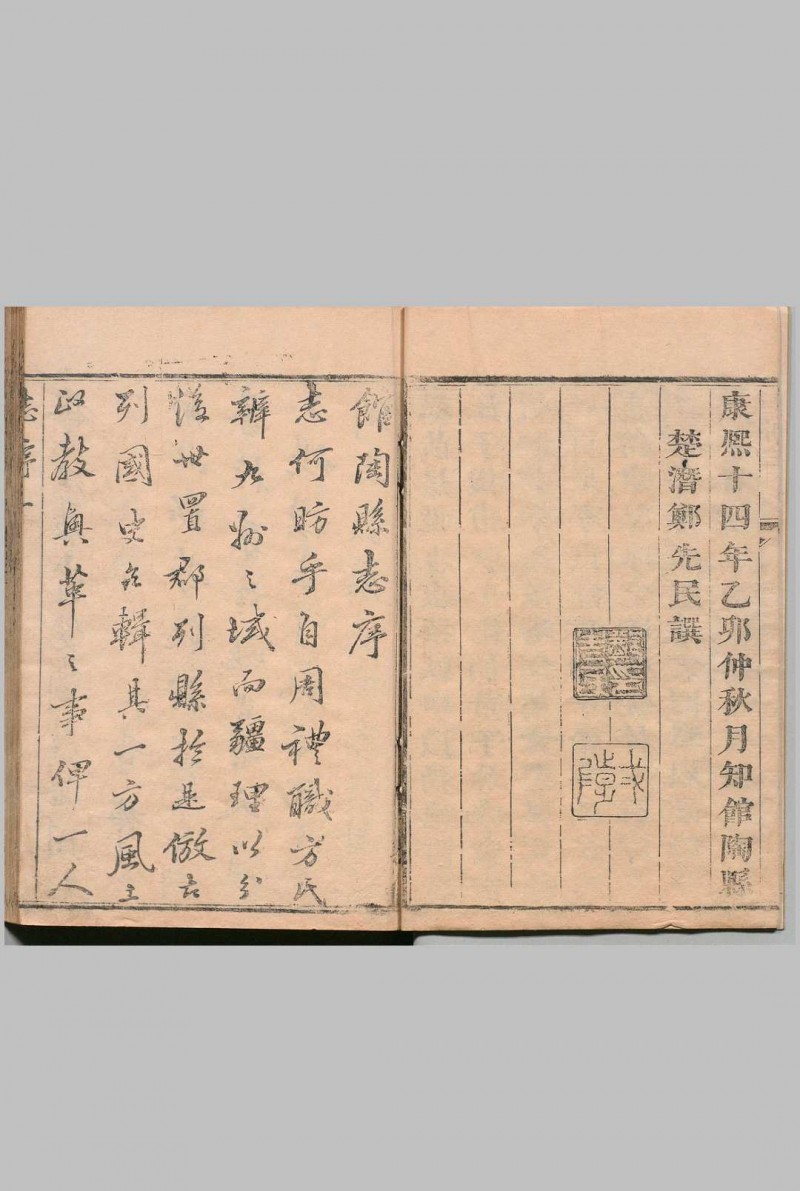 康熙十四年乙卯仲秋月知館陶縣
楚潛鄭先民譔
館陶縣志序
志何昉乎自周禮職方氏
辨九州之域而疆理以分
後世置郡列縣於是倣古
列國史各輯其一方風土
政教興革之事俾一人
志序一